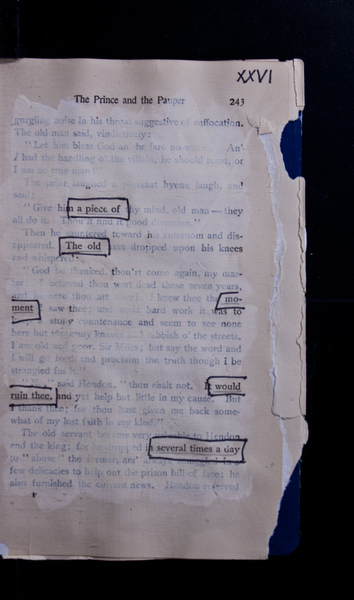 XXVI
The Prince and the Pauper 243
gurgling noise in his throat suggestive of suffocation.
The old man said, vindictively:
"Let him bless God an' he fare no worse. An'
I had the handling o' the villain, he should roast, or
I am no true man!"
The jailer laughed a pleasant hyena laugh, and
said:
"Give him a piece of thy mind, old man—they
all do it. Thou'lt find it good diversion."
Then he sauntered toward his anteroom and dis-
appeared. The old man dropped upon his knees
and whispered:
"God be thanked, thou'rt come again, my mas-
I believed thou wert dead these seven years,
and here thou art alive! I knew thee the mo-
ment I saw thee; and main hard work it was to
a stony countenance and seem to see none
here but tuppenny knaves and rubbish o' the streets.
I am old and poor, Sir Miles; but say the word and
I will go forth and proclaim the truth though I be
strangled for it."
said Hendon, "thou shalt not. It would
ruin thee, and yet help but little in my cause. But
I thank thee; for thou hast given me back some-
what of my lost faith in my kind."
The old servant became very valuable to Hendon
and the king; for he dropped in several times a day
to "abuse" the former, and always smuggled in a
few delicacies to help out the prison bill of fare; he
also furnished the current news. Hendon reserved